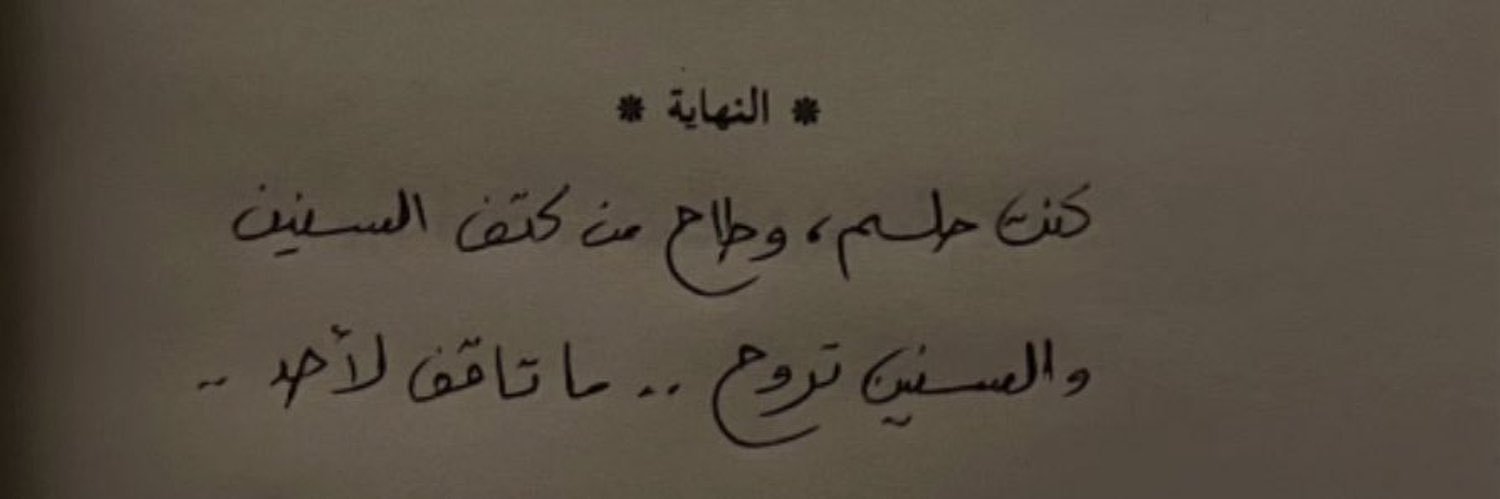 * النهاية *
كنت حلم، وطاح من كتف السنين
والسنين تروح .. ما تاقف لأحد ..